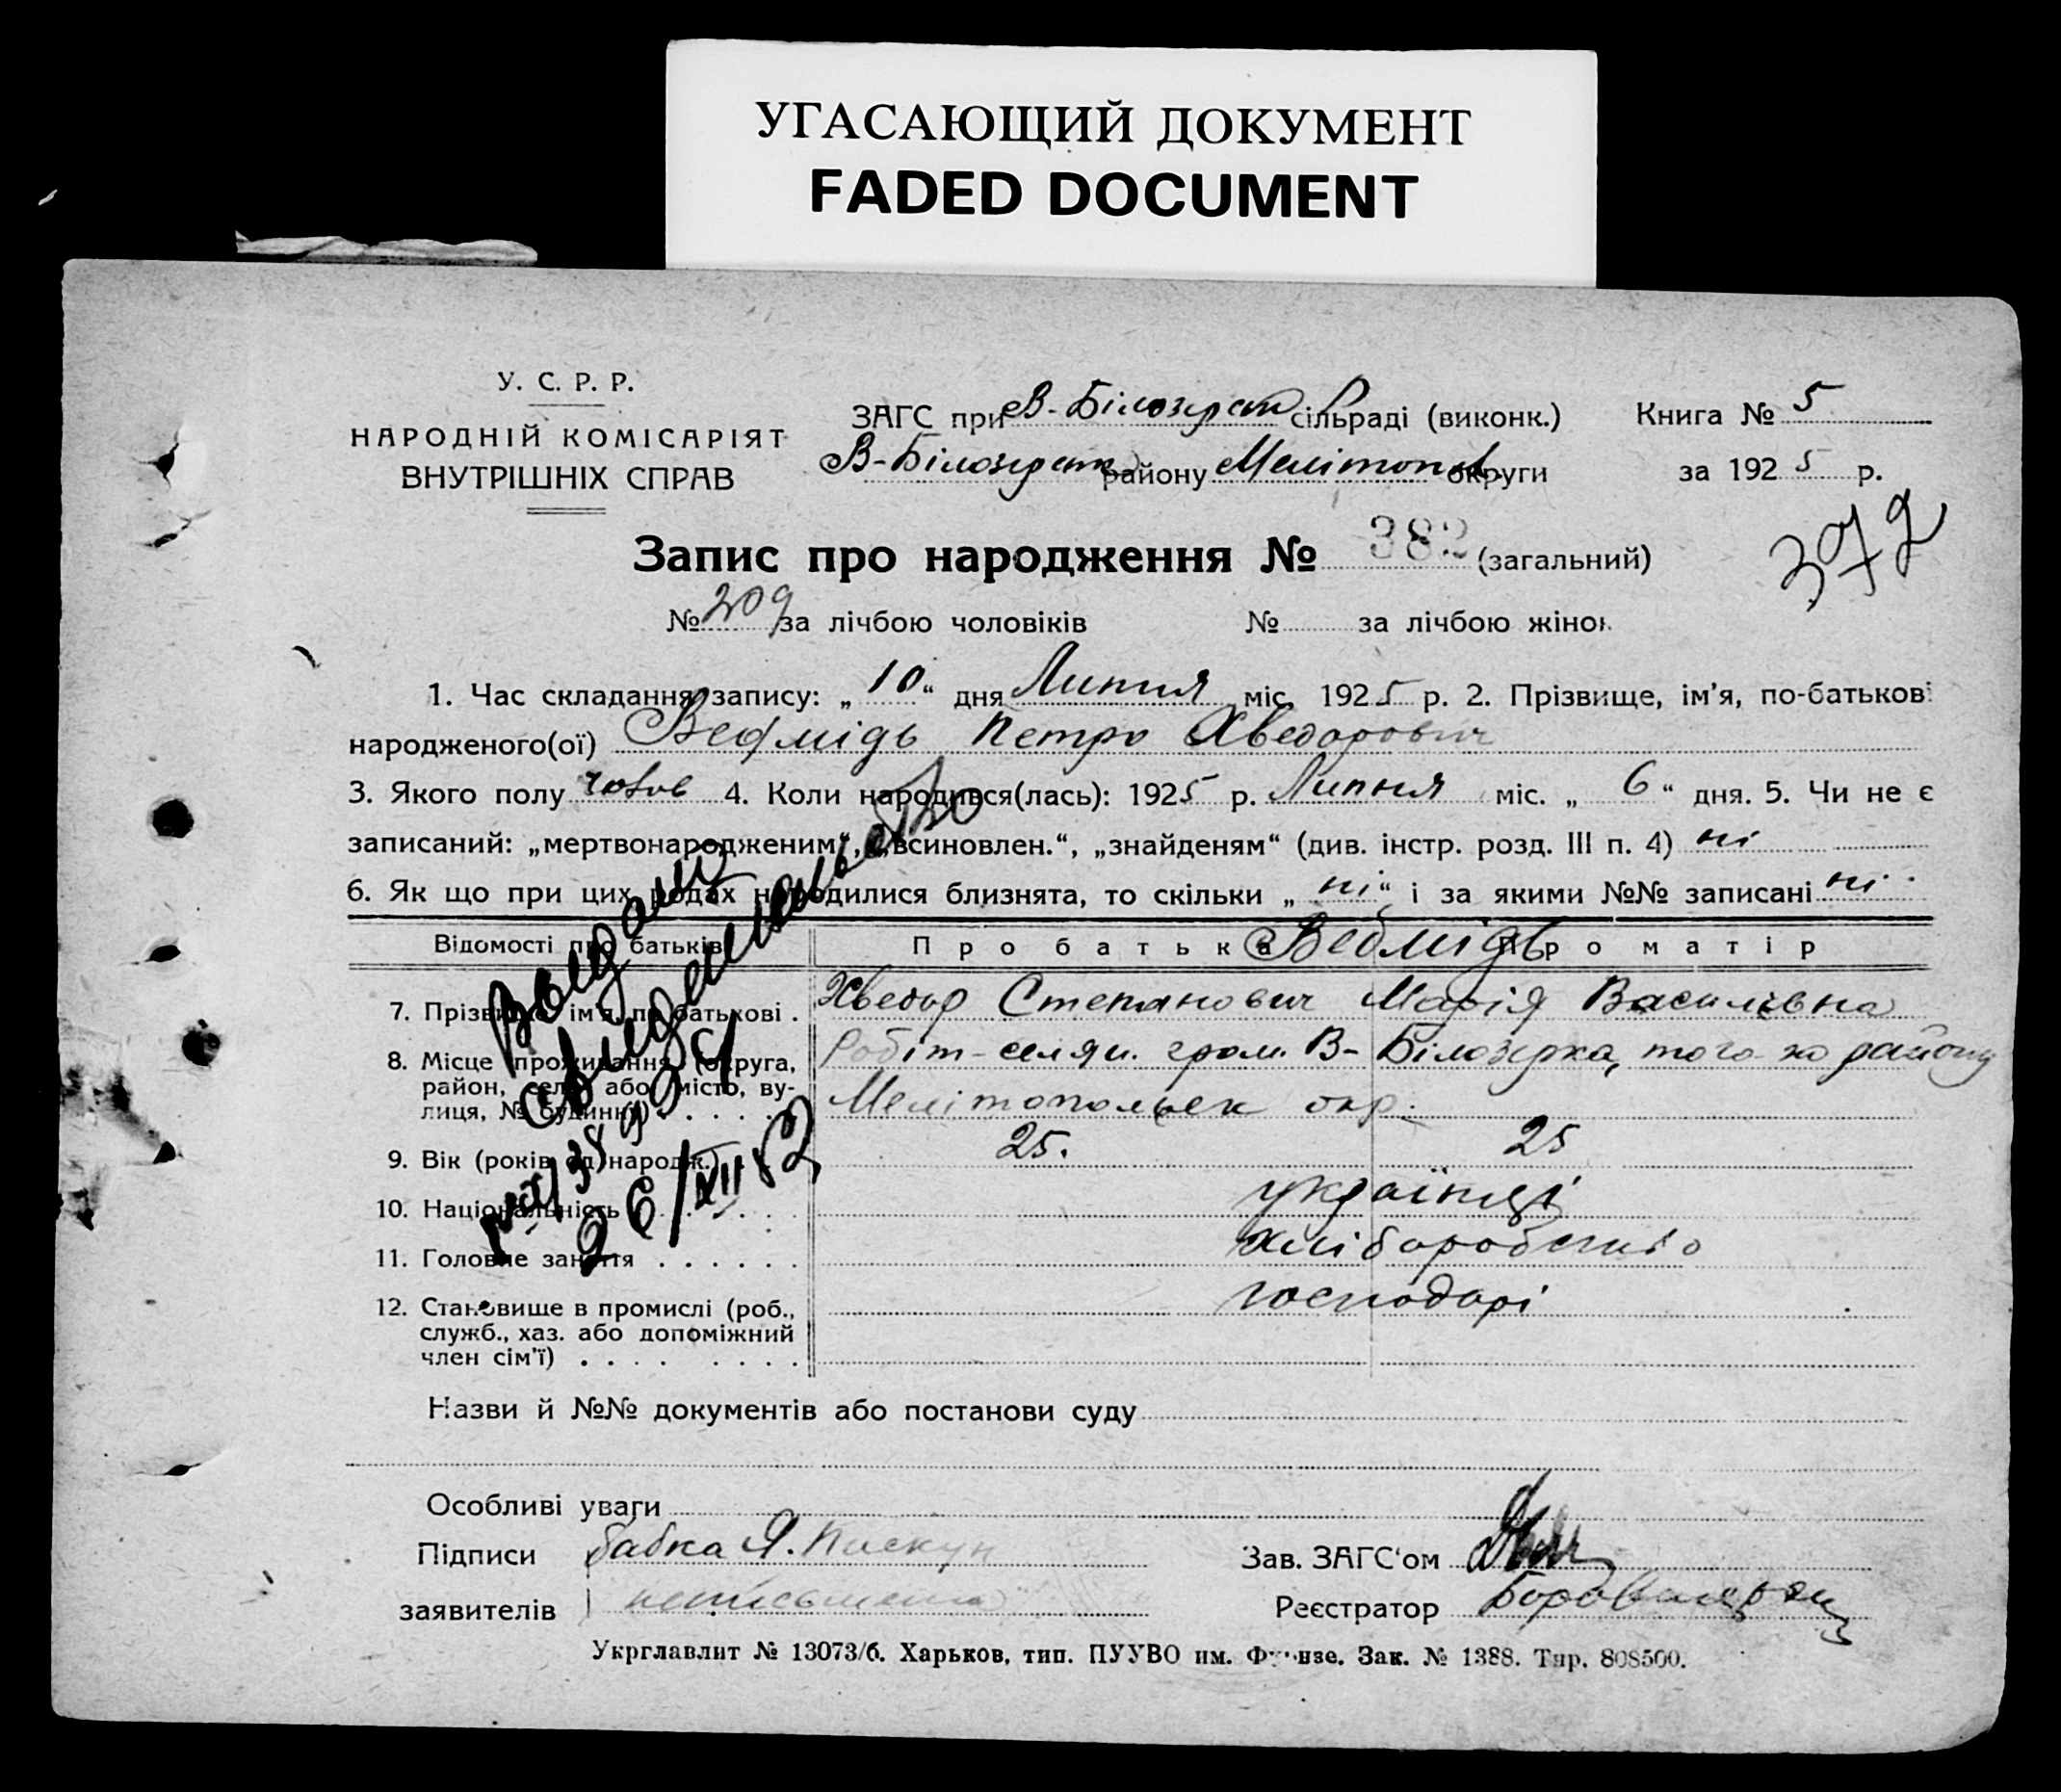 УГАСАЮЩИЙ ДОКУМЕНТ
FADED DOCUMENT
У. С. Р. Р.
НАРОДНІЙ КОМІСАРІЯТ
ВНУТРІШНІХ СПРАВ
ЗАГС при В-Білозерск сільраді (виконк.)
В-Білозерск району Мелітопол. округи
Книга № 5
за 1925 р.
372
Запис про народження № 382 (загальний)
№ 209 за лічбою чоловіків № за лічбою жінок
1. Час складання запису: „10“ дня Липня міс. 1925 р. 2. Прізвище, ім’я, по-батькові
народженого(ої) Ведмідь Петро Хведорович
3. Якого полу чолов 4. Коли народився(лась): 1925 р. Липня міс. „6“ дня. 5. Чи не є
записаний: „мертвонародженим“, „всиновлен.“, „знайденям“ (див. інстр. розд. III п. 4) ні
6. Як що при цих родах народилися близнята, то скільки „ні“ і за якими №№ записані ні
Відомості про батьків Про батька Ведмідь Про матір
7. Прізвище, ім’я, по батькові . Хведор Степанович Марія Василівна
8. Місце проживання (округа, район, село або місто, вулиця, № будинку) Робіт-селян. гром. В-Білозерка, того-ж району
Мелітопольск окр.
9. Вік (років од народж.) 25. 25
10. Національність українці
11. Головне заняття . . . . . . хліборобство
12. Становище в промислі (роб., господарі
служб., хаз. або допоміжний
член сім’ї) . . . . . . . .
26/XII 52
Назви й №№ документів або постанови суду
Особливі уваги
Підписи бабка Я. Пискун
заявителів неписьменна
Зав. ЗАГС‘ом
Реєстратор
Укрглавлит № 13073/б. Харьков, тип. ПУУВО им. Фрунзе. Зак. № 1388. Тир. 808500.